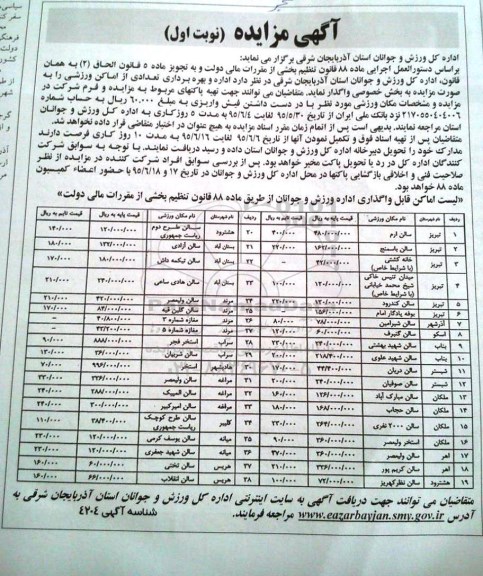 آگهی مزایده (نوبت اول)
اداره کل ورزش و جوانان استان آذربایجان شرقی برگزار می نماید:
براساس دستورالعمل اجرایی ماده ۸۸ قانون تنظیم بخشی از مقررات مالی دولت و به تجویز ماده ۵ قانون الحاق (۲) به همان
قانون، اداره کل ورزش و جوانان استان آذربایجان شرقی در نظر دارد اداره و بهره برداری تعدادی از اماکن ورزشی را به
صورت مزایده به بخش خصوصی واگذار نماید. متقاضیان می توانند جهت تهیه پاکتهای مربوط به مزایده و فرم شرکت در
مزایده و مشخصات مکان ورزشی مورد نظر با در دست داشتن فیش واریزی به مبلغ ۶۰.۰۰۰ ریال به حساب شماره
۲۱۷۰۵۵۰۴۰۴۰۰۶ نزد بانک ملی ایران از تاریخ ۹۵/۵/۳۰ لغایت ۹۵/۶/۴ به مدت ۵ روزکاری به اداره کل ورزش و جوانان
استان مراجعه نمایند. بدیهی است پس از اتمام زمان مقرر اسناد مزایده به هیچ عنوان در اختیار متقاضی قرار داده نخواهد شد.
متقاضیان پس از تهیه اسناد فوق و تکمیل نمودن آنها از تاریخ ۹۵/۶/۶ لغایت ۹۵/۶/۱۶ به مدت ۱۰ روز کاری فرصت دارند
مدارکت خود را تحویل دبیرخانه اداره کل ورزش و جوانان استان داده و رسید دریافت نمایند. با توجه به سوابق شرکت
کنندگان اداره کل در رد یا تحویل پاکت مخیر خواهد بود. پس از بررسی سوابق افراد شرکت کننده در مزایده از نظر
صلاحیت فنی و اخلاقی بازگشایی پاکتها در محل اداره کل ورزش و جوانان در تاریخ ۱۷ و ۹۵/۶/۱۸ با حضور اعضاء کمیسیون
ماده ۸۸ خواهد بود.
«لیست اماکن قابل واگذاری اداره ورزش و جوانان از طریق ماده ۸۸ قانون تنظیم بخشی از مقررات مالی دولت»
ردیف نام شهرستان نام مکان ورزشی قیمت پایه به ریال قیمت تامین به ریال ردیف نام شهرستان نام مکان ورزشی قیمت پایه به ریال قیمت تامین به ریال
۱ تبریز سالن ارم ۴۸۰/۰۰۰/۰۰۰ ۴۰۰/۰۰۰ ۲۰ هشترود سالن طرح دوم ریاست جمهوری ۱۲۰/۰۰۰/۰۰۰ ۱۴۰/۰۰۰
۲ تبریز سالن باسمنج ۱۶۲/۰۰۰/۰۰۰ ۲۲۰/۰۰۰ ۲۱ بستان آباد سالن آزادی ۱۳۲/۰۰۰/۰۰۰ ۱۸۰/۰۰۰
۳ تبریز خانه کشتی (با شرایط خاص) ۴۲/۰۰۰/۰۰۰ — ۲۲ بستان آباد سالن تیکمه داش ۱۸۰/۰۰۰/۰۰۰ ۱۷۰/۰۰۰
۴ تبریز میدان تنیس خاکی شیخ محمد خیابانی (با شرایط خاص) ۱۲۰/۰۰۰/۰۰۰ ۱۰۰/۰۰۰ ۲۳ بستان آباد سالن هادی ساعی ۲۴۰/۰۰۰/۰۰۰ ۲۱۰/۰۰۰
۵ تبریز سالن کندرود ۱۲۰/۰۰۰/۰۰۰ ۲۲۰/۰۰۰ ۲۴ مرند سالن ولیعصر ۴۲۰/۰۰۰/۰۰۰ ۲۱۰/۰۰۰
۶ تبریز بوفه یادگار امام ۱۵۶/۰۰۰/۰۰۰ — ۲۵ مرند سالن گلین قیه ۸۴/۰۰۰/۰۰۰ ۱۷۰/۰۰۰
۷ آذرشهر سالن شیرامین ۷۸/۰۰۰/۰۰۰ ۸۰/۰۰۰ ۲۶ مرند مغازه شماره ۳ ۴۰/۸۰۰/۰۰۰ —
۸ اسکو سالن گنبرف ۶۰/۰۰۰/۰۰۰ ۱۲۰/۰۰۰ ۲۷ مرند مغازه شماره ۵ ۴۲/۲۰۰/۰۰۰ —
۹ بناب سالن شهید بهشتی ۲۴۰/۰۰۰/۰۰۰ ۲۳۰/۰۰۰ ۲۸ سراب استخر فجر ۸۸۸/۰۰۰/۰۰۰ ۹۰/۰۰۰
۱۰ بناب سالن شهید علوی ۲۱۸/۴۰۰/۰۰۰ ۲۰۰/۰۰۰ ۲۹ سراب سالن شربیان ۳۶/۰۰۰/۰۰۰ ۱۲۰/۰۰۰
۱۱ شبستر سالن دریان ۳۴/۴۰۰/۰۰۰ ۱۷۰/۰۰۰ ۳۰ هادیشهر استخر ۹۹۶/۰۰۰/۰۰۰ ۷۰/۰۰۰
۱۲ شبستر سالن صوفیان ۲۴۰/۰۰۰/۰۰۰ ۲۰۰/۰۰۰ ۳۱ مراغه سالن ولیعصر ۳۳۶/۰۰۰/۰۰۰ ۲۳۰/۰۰۰
۱۳ ملکان سالن مبارک آباد ۱۲۶/۰۰۰/۰۰۰ ۱۶۰/۰۰۰ ۳۲ مراغه سالن المپیک ۲۸۸/۰۰۰/۰۰۰ ۲۴۰/۰۰۰
۱۴ ملکان سالن حجاب ۱۶۸/۰۰۰/۰۰۰ ۱۸۰/۰۰۰ ۳۳ مراغه سالن امیرکبیر ۳۰۰/۰۰۰/۰۰۰ ۲۴۰/۰۰۰
۱۵ ملکان سالن ۲۰۰۰ نفری ۲۶۴/۰۰۰/۰۰۰ ۲۳۰/۰۰۰ ۳۴ کلیبر سالن طرح کوچک ریاست جمهوری ۳۸/۴۰۰/۰۰۰ ۱۱۰/۰۰۰
۱۶ ملکان استخر ولیعصر ۳۶۰/۰۰۰/۰۰۰ ۹۰/۰۰۰ ۳۵ میانه سالن یوسف کرمی ۱۲۰/۰۰۰/۰۰۰ ۲۳۰/۰۰۰
۱۷ اهر سالن ولیعصر ۲۶۰/۰۰۰/۰۰۰ ۴۷۰/۰۰۰ ۳۶ میانه سالن شهید جعفری ۱۲۰/۰۰۰/۰۰۰ ۲۳۰/۰۰۰
۱۸ اهر سالن کریم پور ۳۳۶/۰۰۰/۰۰۰ ۲۱۰/۰۰۰ ۳۷ هریس سالن تختی ۶۰/۰۰۰/۰۰۰ ۱۶۰/۰۰۰
۱۹ هشترود سالن نظرکهریز ۷۲/۰۰۰/۰۰۰ ۱۰۰/۰۰۰ ۳۸ هریس سالن انقلاب ۶۶/۰۰۰/۰۰۰ ۱۶۰/۰۰۰
متقاضیان می توانند جهت دریافت آگهی به سایت اینترنتی اداره کل ورزش و جوانان استان آذربایجان شرقی به
آدرس www.eazarbayjan.smy.gov.ir مراجعه فرمایند. شناسه آگهی ۴۷۰۴